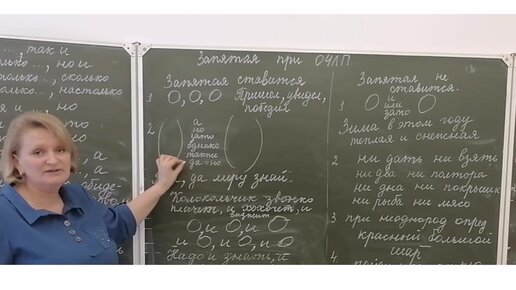 ..., так и
...., но и
столько..., сколько
столько..., насколько
но
, а
Запятая при ОЧП
Запятая ставится
1 О, О, О Пришел, увидел,
победил
2 а
но
зато
однако
также
да = но
да меру знай.
Колокольчик звонко
плачет, и хохочет, и
визжит
О, и О, и О
и О, и О, и О
Надо и знать, и
Запятая не
ставится.
1 О и О
или
зато
Зима в этом году
теплая и снежная
2 ни дать ни взять
ни два ни полтора
ни дна ни покрышки
ни рыба ни мясо
3 при неоднород опред
красный большой
шар
4